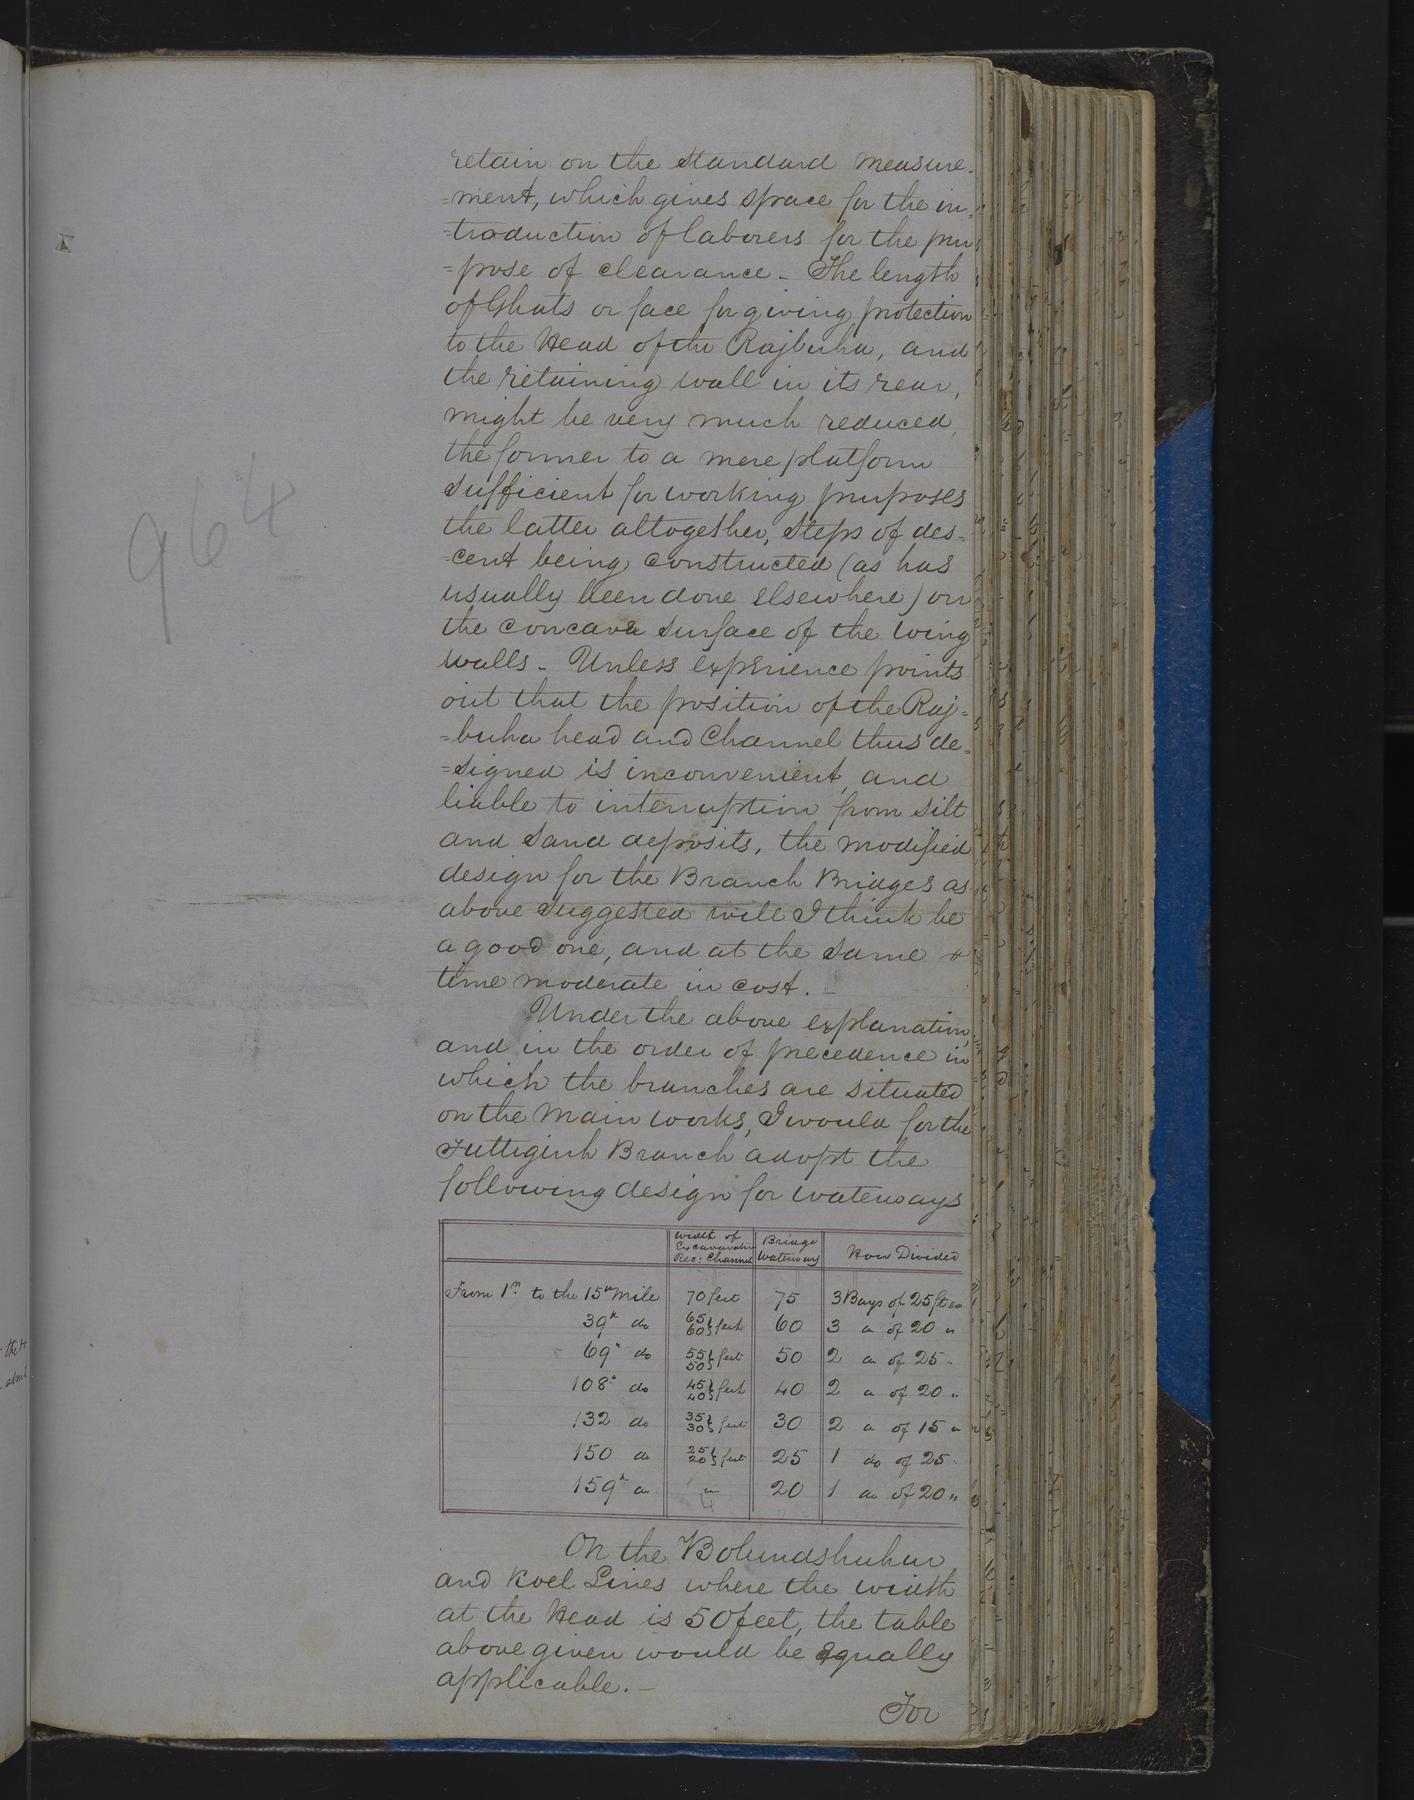 retain on the standard measure-
=ment, which gives space for the in=
=troduction of laborers for the pur
=pose of clearance - The length
of Ghats or face for giving protection
to the Head of the Rajbuha, and
the retaining wall in its rear,
might be very much reduced,
the former to a mere platform
sufficient for working purposes
the latter altogether, steps of des=
=cent being constructed (as has
usually been done elsewhere) on
the concave surface of the wing
walls - Unless experience points
out that the position of the Raj=
=buha head and Channel thus de=
=signed is inconvenient, and
liable to interruption from silt
and sand deposits, the modified
design for the Branch Bridges as
above suggested will I think be
a good one, and at the same
time moderate in cost. -
Under the above explanation,
and in the order of precedence in
which the branches are situated
on the Main works, I would for the
Futtigurh Branch adopt the
following design for waterways
Width of Excavation Rec: Channel Bridge Waterway How Divided
From 1st to the 15th Mile 70 feet 75 3 Bays of 25 ft ea
39th do 65 60 } feet 60 3 " of 20 "
69th do 55 50 } feet 50 2 " of 25 "
108th do 45 40 } feet 40 2 " of 20 "
132 do 35 30 } feet 30 2 " of 15 "
150 do 25 20 } feet 25 1 do of 25 "
159th do " 20 1 do of 20 "
On the Bolundshuhur
and Koel Lines where the width
at the Head is 50 feet, the table
above given would be equally
applicable. -
For
964